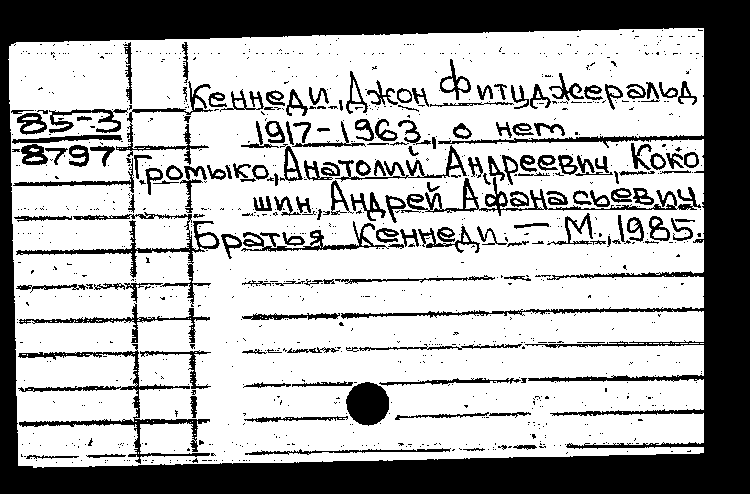 Кеннеди, Джон Фитцджеральд
85-3
1917-1963, о нем.
8797
Громыко, Анатолий Андреевич, Коко
шин, Андрей Афанасьевич.
Братья Кеннеди. — М., 1985.